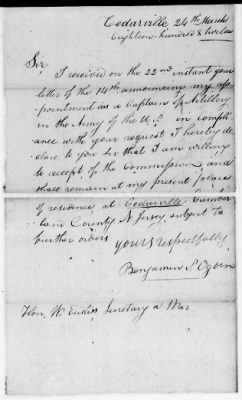 Cedarville 24th March
Eighteen hundred & twelve
Sir,
I received on the 22nd instant your
letter of the 14th announcing my ap
pointment as a Captain of Artillery
in the Army of the U.S. in compli
ance with your request I hereby de
clare to you Sir that I am willing
to accept of the Commission and
shall remain at my present place
of residence at Cedarville Cumber
land County N Jersey subject to
further orders
yours respectfully
Benjamin S. Ogden
Hon. W. Eustis Secretary a War